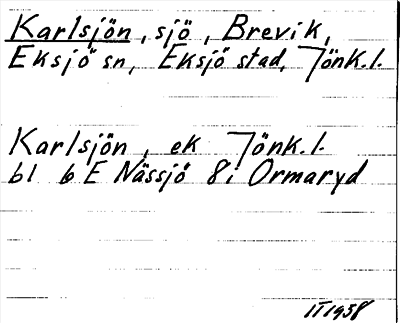 Karlsjön, sjö, Brevik,
Eksjö sn, Eksjö stad, Jönk.l.
Karlsjön, ek Jönk.l.
bl 6 E Nässjö 8i Ormaryd
II 1938